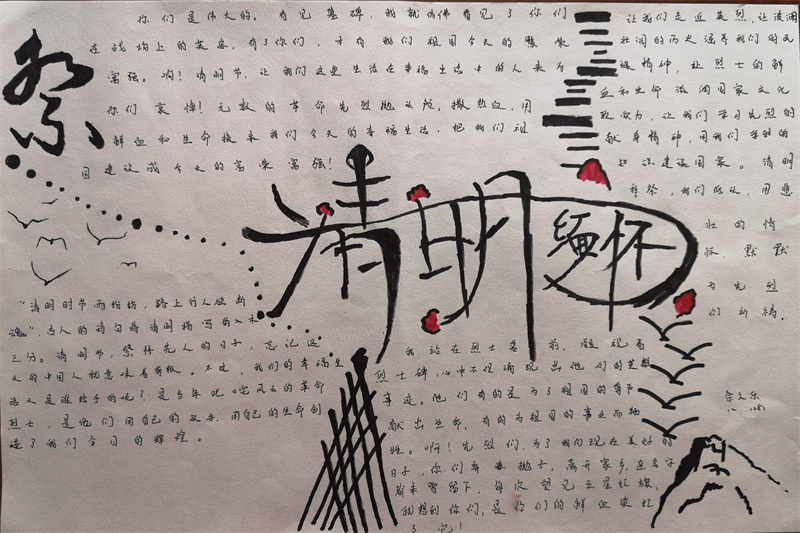 祭
你们是伟大的。看见墓碑,我就仿佛看见了你们
在战场上的英姿,有了你们,才有我们祖国今天的繁荣
富强。啊!清明节,让我们这些生活在幸福生活中的人来为
你们哀悼!无数的革命先烈抛头颅,撒热血,用
鲜血和生命换来我们今天的幸福生活,把我们祖
国建设成今天的富荣富强!
让我们走近英烈,让波澜
壮阔的历史涵养我们的民
族精神,让烈士的鲜
血和生命浇灌国家文化
软实力,让我们学习先烈的
献身精神,用我们学到的
知识建设国家。清明
拜祭,我们缅怀,用悲
壮的情
怀,默默
为先烈
们祈祷。
清明
缅怀
“清明时节雨纷纷,路上行人欲断
魂”,古人的诗句将清明描写的入木
三分。清明节,祭拜先人的日子,忘记过
去的中国人就意味着背叛。不过,我们的幸福生
活又是谁给予的呢?是当年吃
烈士,是他们用自己的双手,用自己的生命创
造了我们今日的辉煌。
我站在烈士墓前,凝视着
烈士碑,心中不但涌现出他们的英雄
事迹。他们有的是为了祖国的尊严
献出生命,有的为祖国的事业而牺
牲。啊!先烈们,为了我们现在美好的
日子,你们奔赴战士,离开家乡,连名字
都未曾留下,每次望见五星红旗
就想到你们,是你们的鲜血染红
了它!